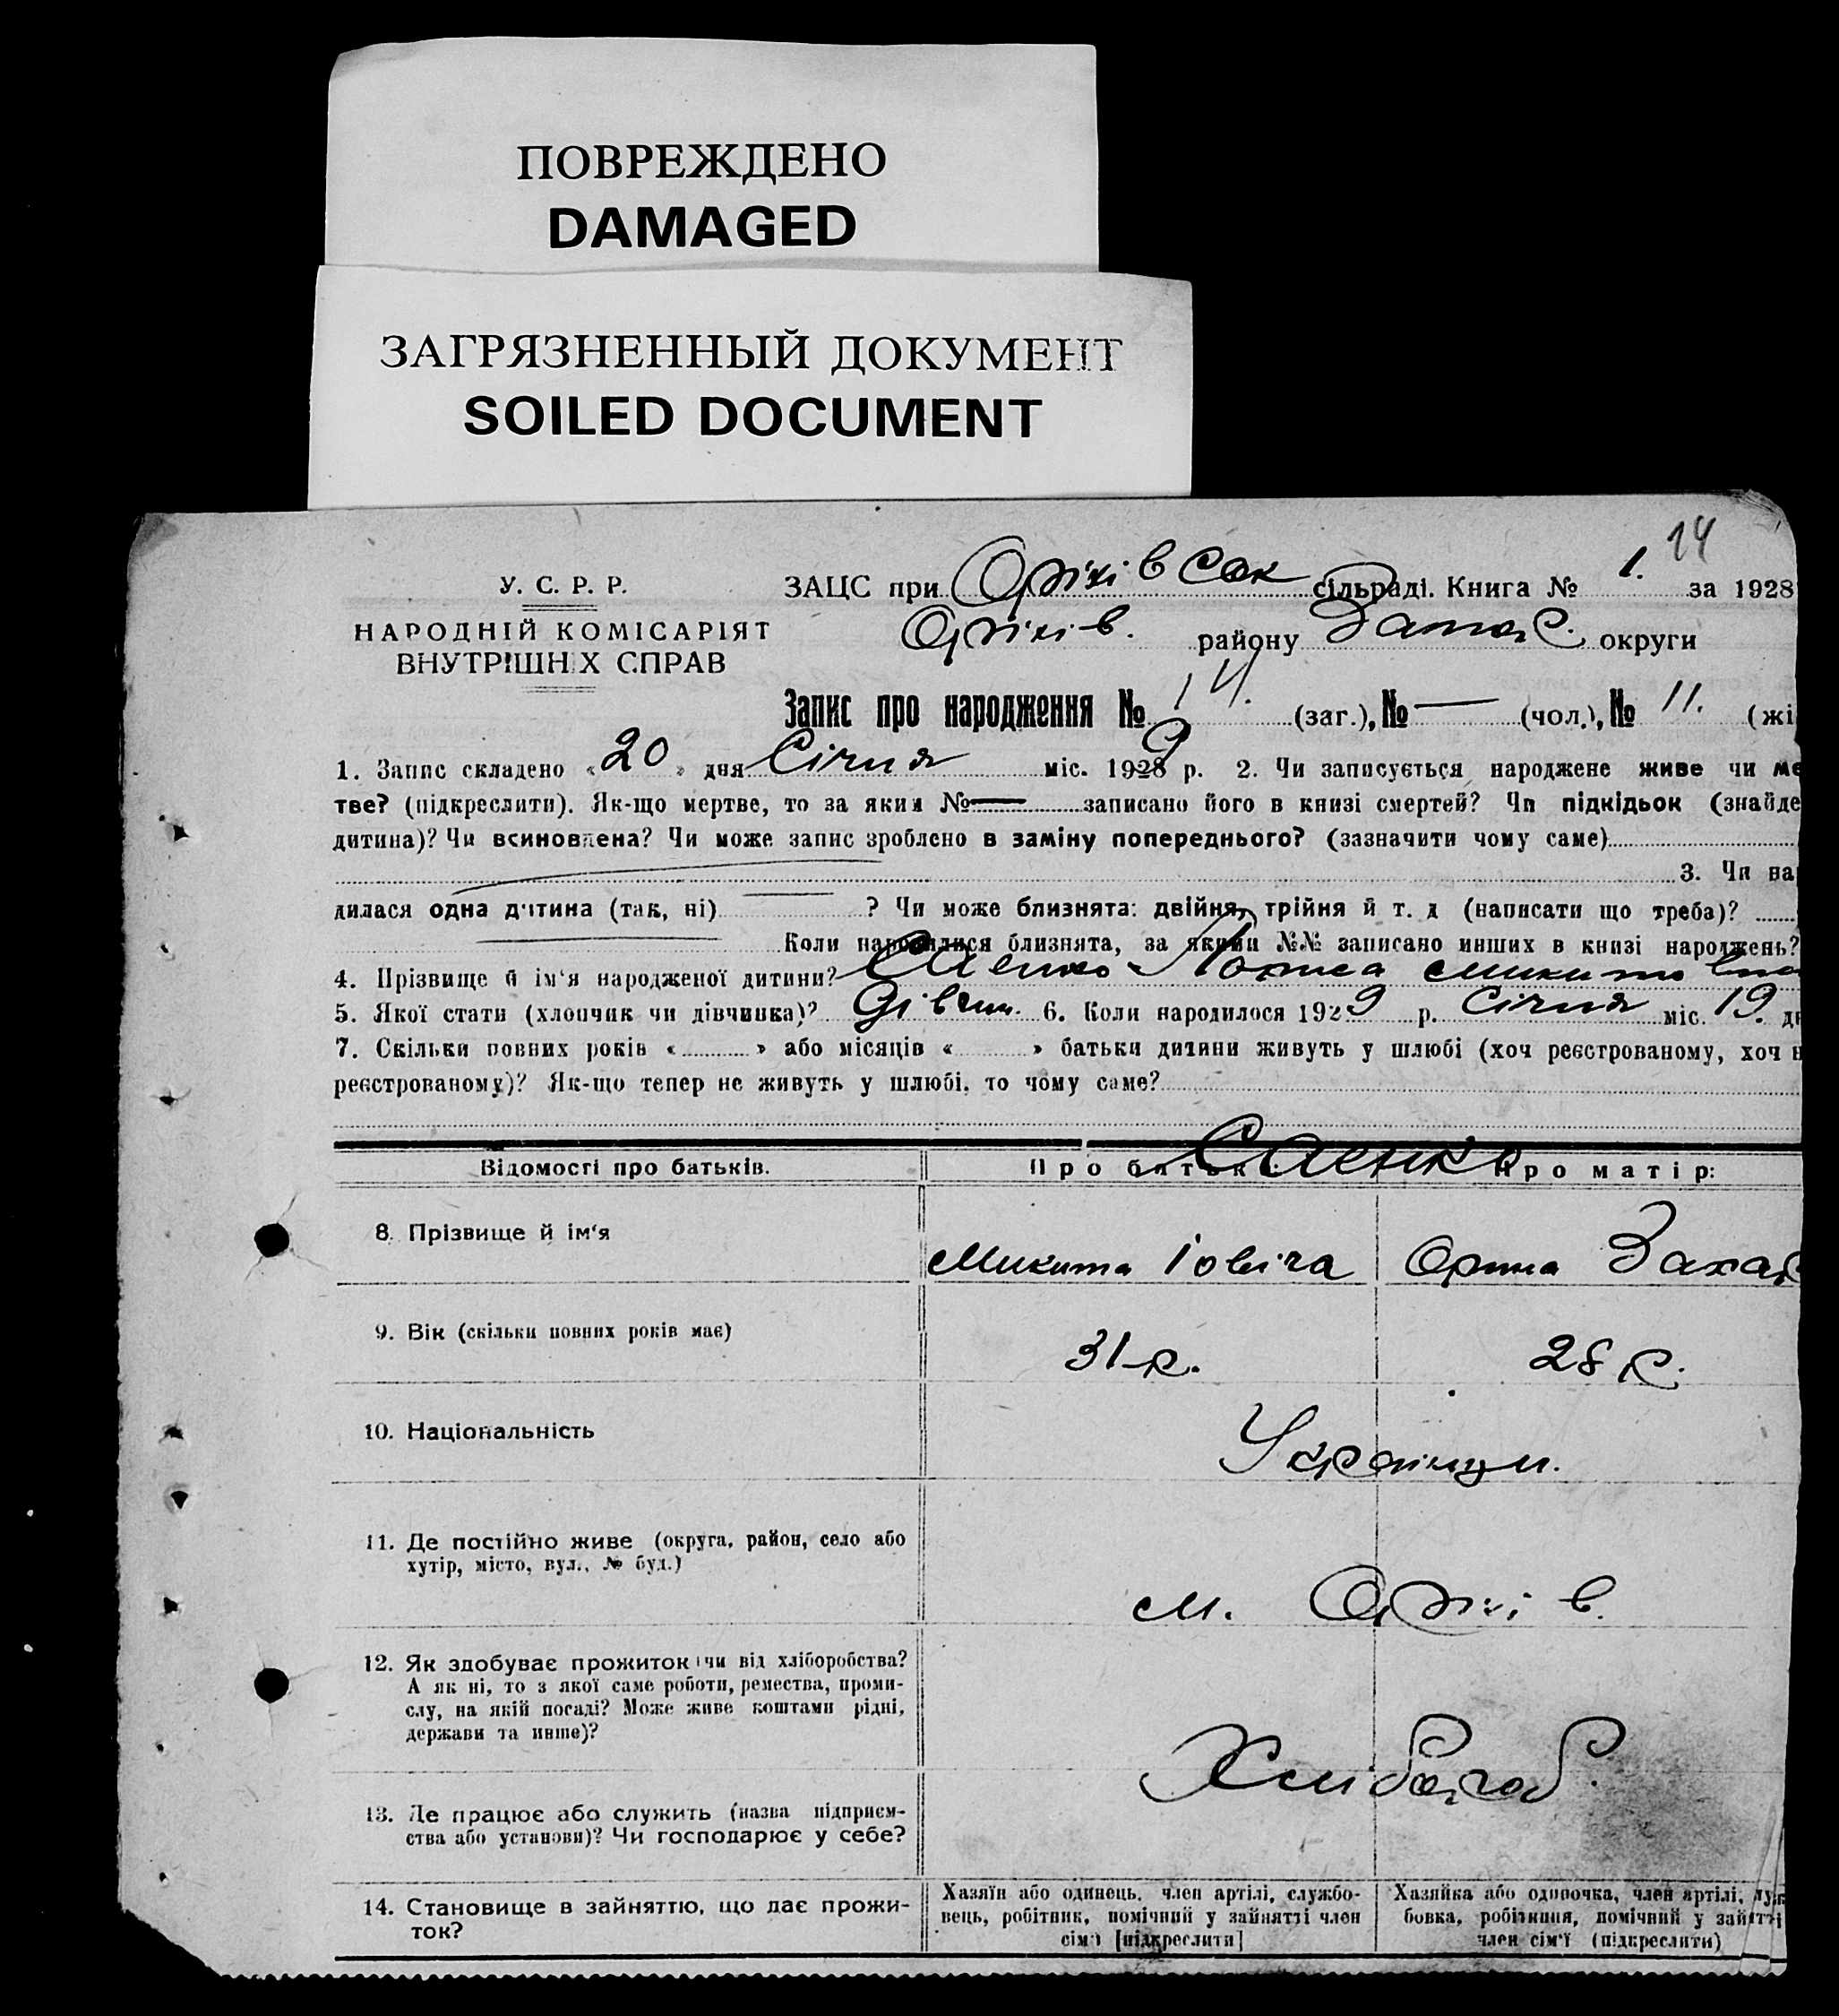 ПОВРЕЖДЕНО
DAMAGED
ЗАГРЯЗНЕННЫЙ ДОКУМЕНТ
SOILED DOCUMENT
14
У. С. Р. Р.
НАРОДНІЙ КОМІСАРІЯТ
ВНУТРІШНІХ СПРАВ
ЗАЦС при Оріхівськ сільраді. Книга № 1. за 1928
Оріхів. району Запоr. округи
Запис про народження № 14. (заг.), № — (чол.), № 11. (жі
1. Запис складено «20» дня Січня міс. 1929 р. 2. Чи записується народжене живе чи ме
тве? (підкреслити). Як-що мертве, то за яким № — записано його в книзі смертей? Чи підкідьок (знайде
дитина)? Чи всиновлена? Чи може запис зроблено в заміну попереднього? (зазначити чому саме)
3. Чи на
дилася одна дитина (так, ні) ? Чи може близнята: двійня, трійня й т. д (написати що треба)?
Коли народилися близнята, за якими №№ записано инших в книзі народжень?
4. Прізвище й ім'я народженої дитини? Саенко Лориса Микитовна
5. Якої стати (хлопчик чи дівчинка)? Дівчин. 6. Коли народилося 1929 р. Січня міс. 19. д
7. Скільки повних років « » або місяців « » батьки дитини живуть у шлюбі (хоч реєстрованому, хоч н
реєстрованому)? Як-що тепер не живуть у шлюбі, то чому саме?
Саенко
Відомості про батьків. Про батька: Про матір:
8. Прізвище й ім'я Микита Іовіча Орина Захар
9. Вік (скільки повних років має) 31 р. 28 р.
10. Національність Українци.
11. Де постійно живе (округа, район, село або
хутір, місто, вул., № буд.)
м. Оріхів.
12. Як здобуває прожиток (чи від хліборобства?
А як ні, то з якої саме роботи, ремества, проми-
слу, на якій посаді? Може живе коштами рідні,
держави та инше)?
Хлібороб.
13. Де працює або служить (назва підприєм-
ства або установи)? Чи господарює у себе?
14. Становище в зайняттю, що дає прожи-
ток?
Хазяїн або одинець, член артілі, службо-
вець, робітник, помічний у зайнятті член
сім'ї [підкреслити]
Хазяйка або одиночка, член артілі, луж
бовка, робітниця, помічний у зайятті
член сім'ї (підкреслити)